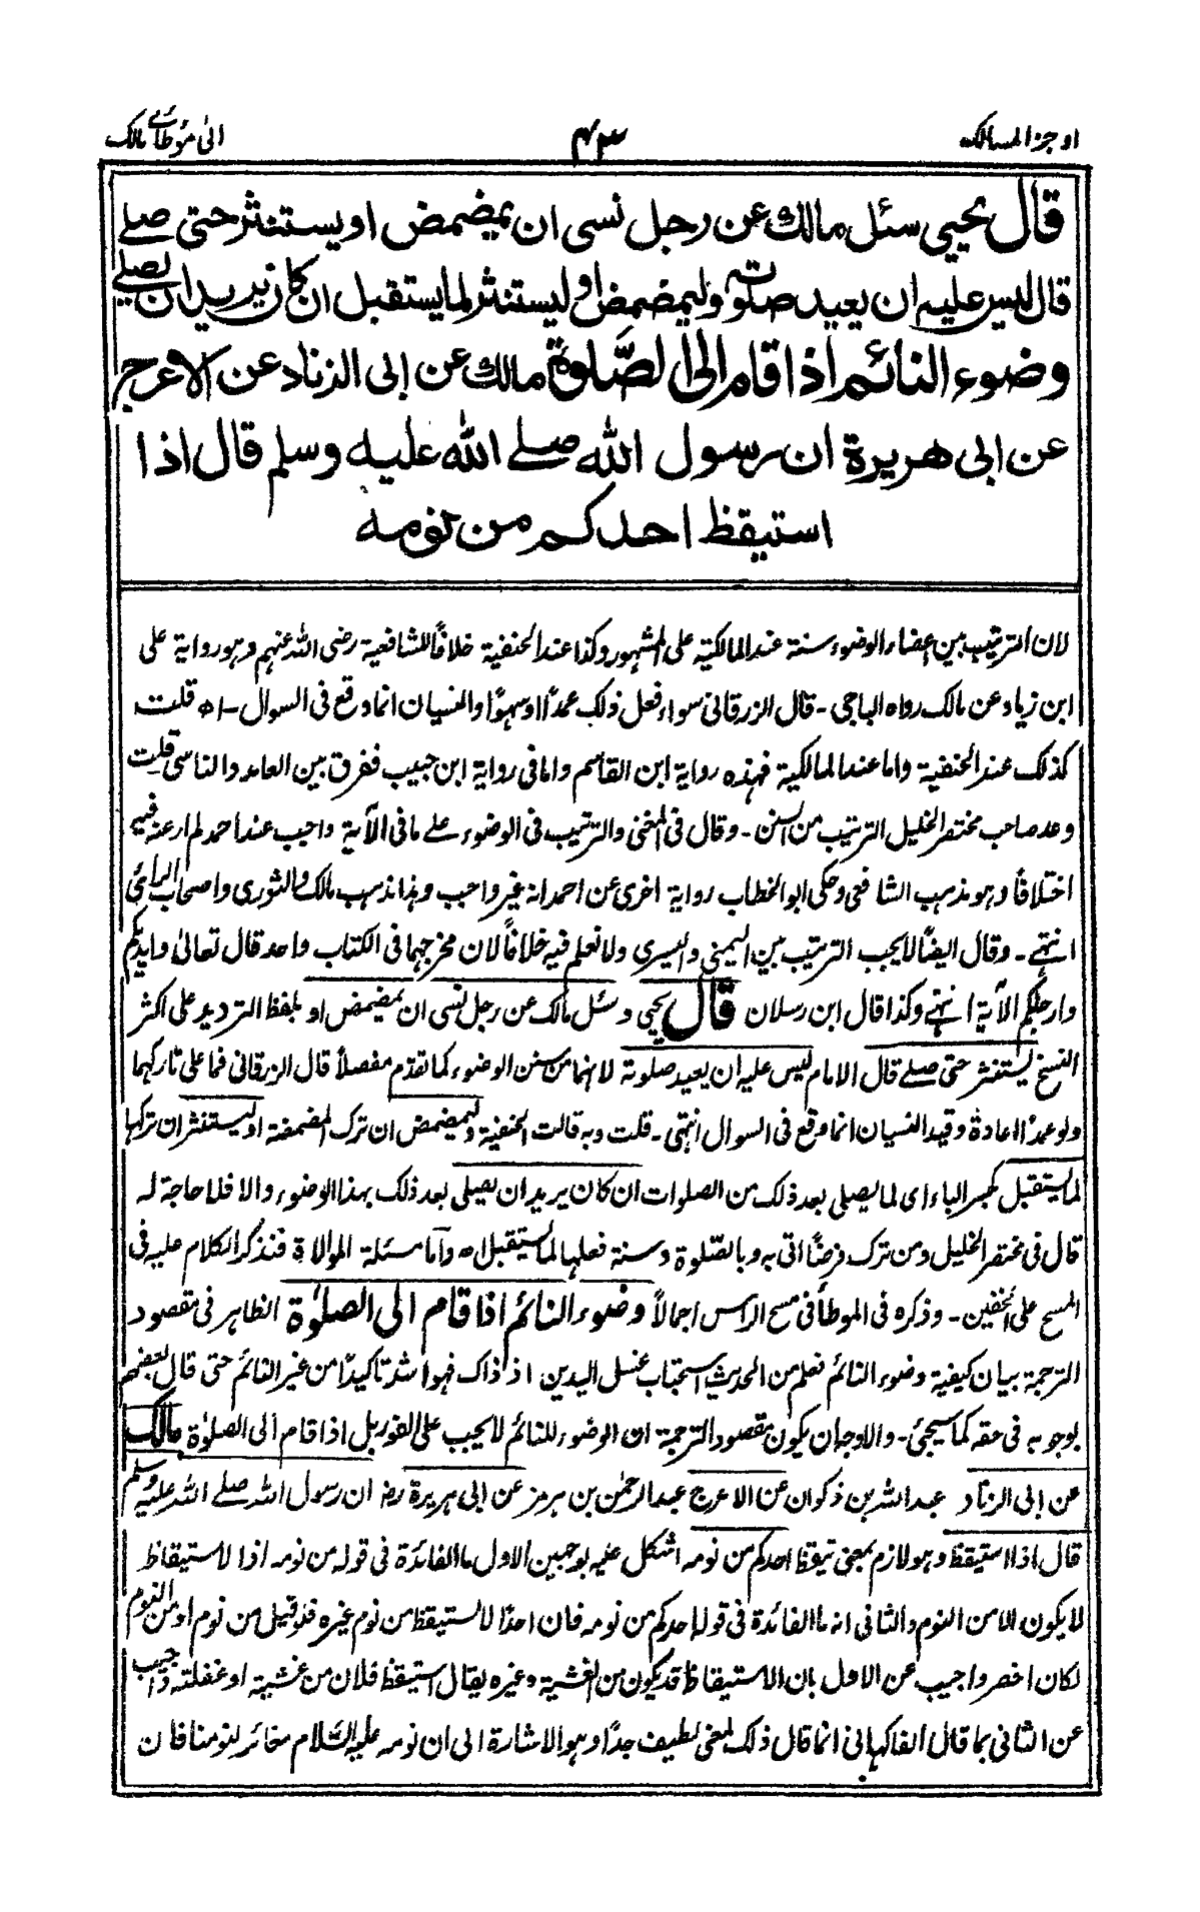 اوجز المسالک ۴۳ الی مؤطائے مالک
قال یحیی سئل مالك عن رجل نسی ان یمضمض او یستنثر حتی صلے
قال لیس علیه ان یعید صلوته ولیمضمض او لیستنثر لما یستقبل ان کان یرید ان یصلے
وضوء النائم اذا قام الی الصّلوة مالك عن ابی الزناد عن الاعرج
عن ابی هریرة ان رسول الله صلے الله علیه وسلم قال اذا
استیقظ احدکم من نومه
لان الترتیب بین اعضاء الوضوء سنة عند المالکیة علی المشہور وکذا عند الحنفیة خلافاً للشافعیة رضی اللہ عنہم وہو روایة علی
ابن زیاد عن مالک رواہ الباجی - قال الزرقانی سواء فعل ذلک عمدًا او سہوًا والنسیان انما وقع فی السوال - اھ قلت
کذلک عند الحنفیة واما عند المالکیة فہذہ روایة ابن القاسم واما فی روایة ابن حبیب ففرق بین العامد والناسی قلت
وعد صاحب مختصر الخلیل الترتیب من السنن - وقال فی المغنی والترتیب فی الوضوء علے ما فی الآیة واجب عند احمد لم ار عنه فیہ
اختلافاً وہو مذہب الشافعی وحکی ابو الخطاب روایة اخری عن احمد انه غیر واجب وہذا مذہب مالک والثوری واصحاب الرائ
انتہے - وقال ایضاً لا یجب الترتیب بین الیمنی والیسری ولا نعلم فیہ خلافاً لان مخرجہما فی الکتاب واحد قال تعالیٰ وایدیکم
وارجلکم الآیة انتہے وکذا قال ابن رسلان قال یحیی وسئل مالک عن رجل نسی ان یمضمض او بلفظ التردید علی اکثر
النسخ یستنثر حتی صلے قال الامام لیس علیہ ان یعید صلوتہ لانہما من سنن الوضوء کما تقدم مفصلاً قال الزرقانی فما علی تارکہما
ولو عمدًا اعادة وقید النسیان انما وقع فی السوال انتہی - قلت وبه قالت الحنفیة ولیمضمض ان ترک المضمضة او لیستنثر ان ترکہا
لما یستقبل بکسر الباء ای لما یصلی بعد ذلک من الصلوات ان کان یرید ان یصلی بعد ذلک بہذا الوضوء والا فلا حاجة له
قال فی مختصر الخلیل ومن ترک فرضاً اتی بہ وبالصّلوة وسنة فعلہا لما یستقبل اھ واما مسئلة الموالاة فنذکر الکلام علیہ فی
المسح علی الخفین - وذکرہ فی الموطا فی مسح الراس اجمالاً وضوء النائم اذا قام الی الصلوٰة الظاہر فی مقصود
الترجمة بیان کیفیة وضوء النائم فعلم من الحدیث استحباب غسل الیدین اذ ذاک فہو اشد تاکیدًا من غیر النائم حتی قال بعضہم
بوجوبہ فی حقه کما سیجئ - والاوجہ ان یکون مقصود الترجمة ان الوضوء للنائم لا یجب علی الفور بل اذا قام الی الصلوٰة مالک
عن ابی الزناد عبداللہ بن ذکوان عن الاعرج عبدالرحمٰن بن ہرمز عن ابی ہریرة رضہ ان رسول اللہ صلے اللہ علیہ وسلم
قال اذا استیقظ وہو لازم بمعنی تیقظ احدکم من نومه اشکل علیہ بوجہین الاول ما الفائدة فی قوله من نومه اذ الاستیقاظ
لا یکون الا من النوم والثانی انه ما الفائدة فی قوله احدکم من نومه فان احدًا لا یستیقظ من نوم غیرہ فلو قیل من نوم او من النوم
لکان اخصر واجیب عن الاول بان الاستیقاظ قد یکون من الغشیة وغیرہ یقال استیقظ فلان من غشیته او غفلته واجیب
عن الثانی بما قال الفاکہانی انما قال ذلک لمعنی لطیف جدًا وہو الاشارة الی ان نومه علیہ السّلام مغائر لنومنا فان